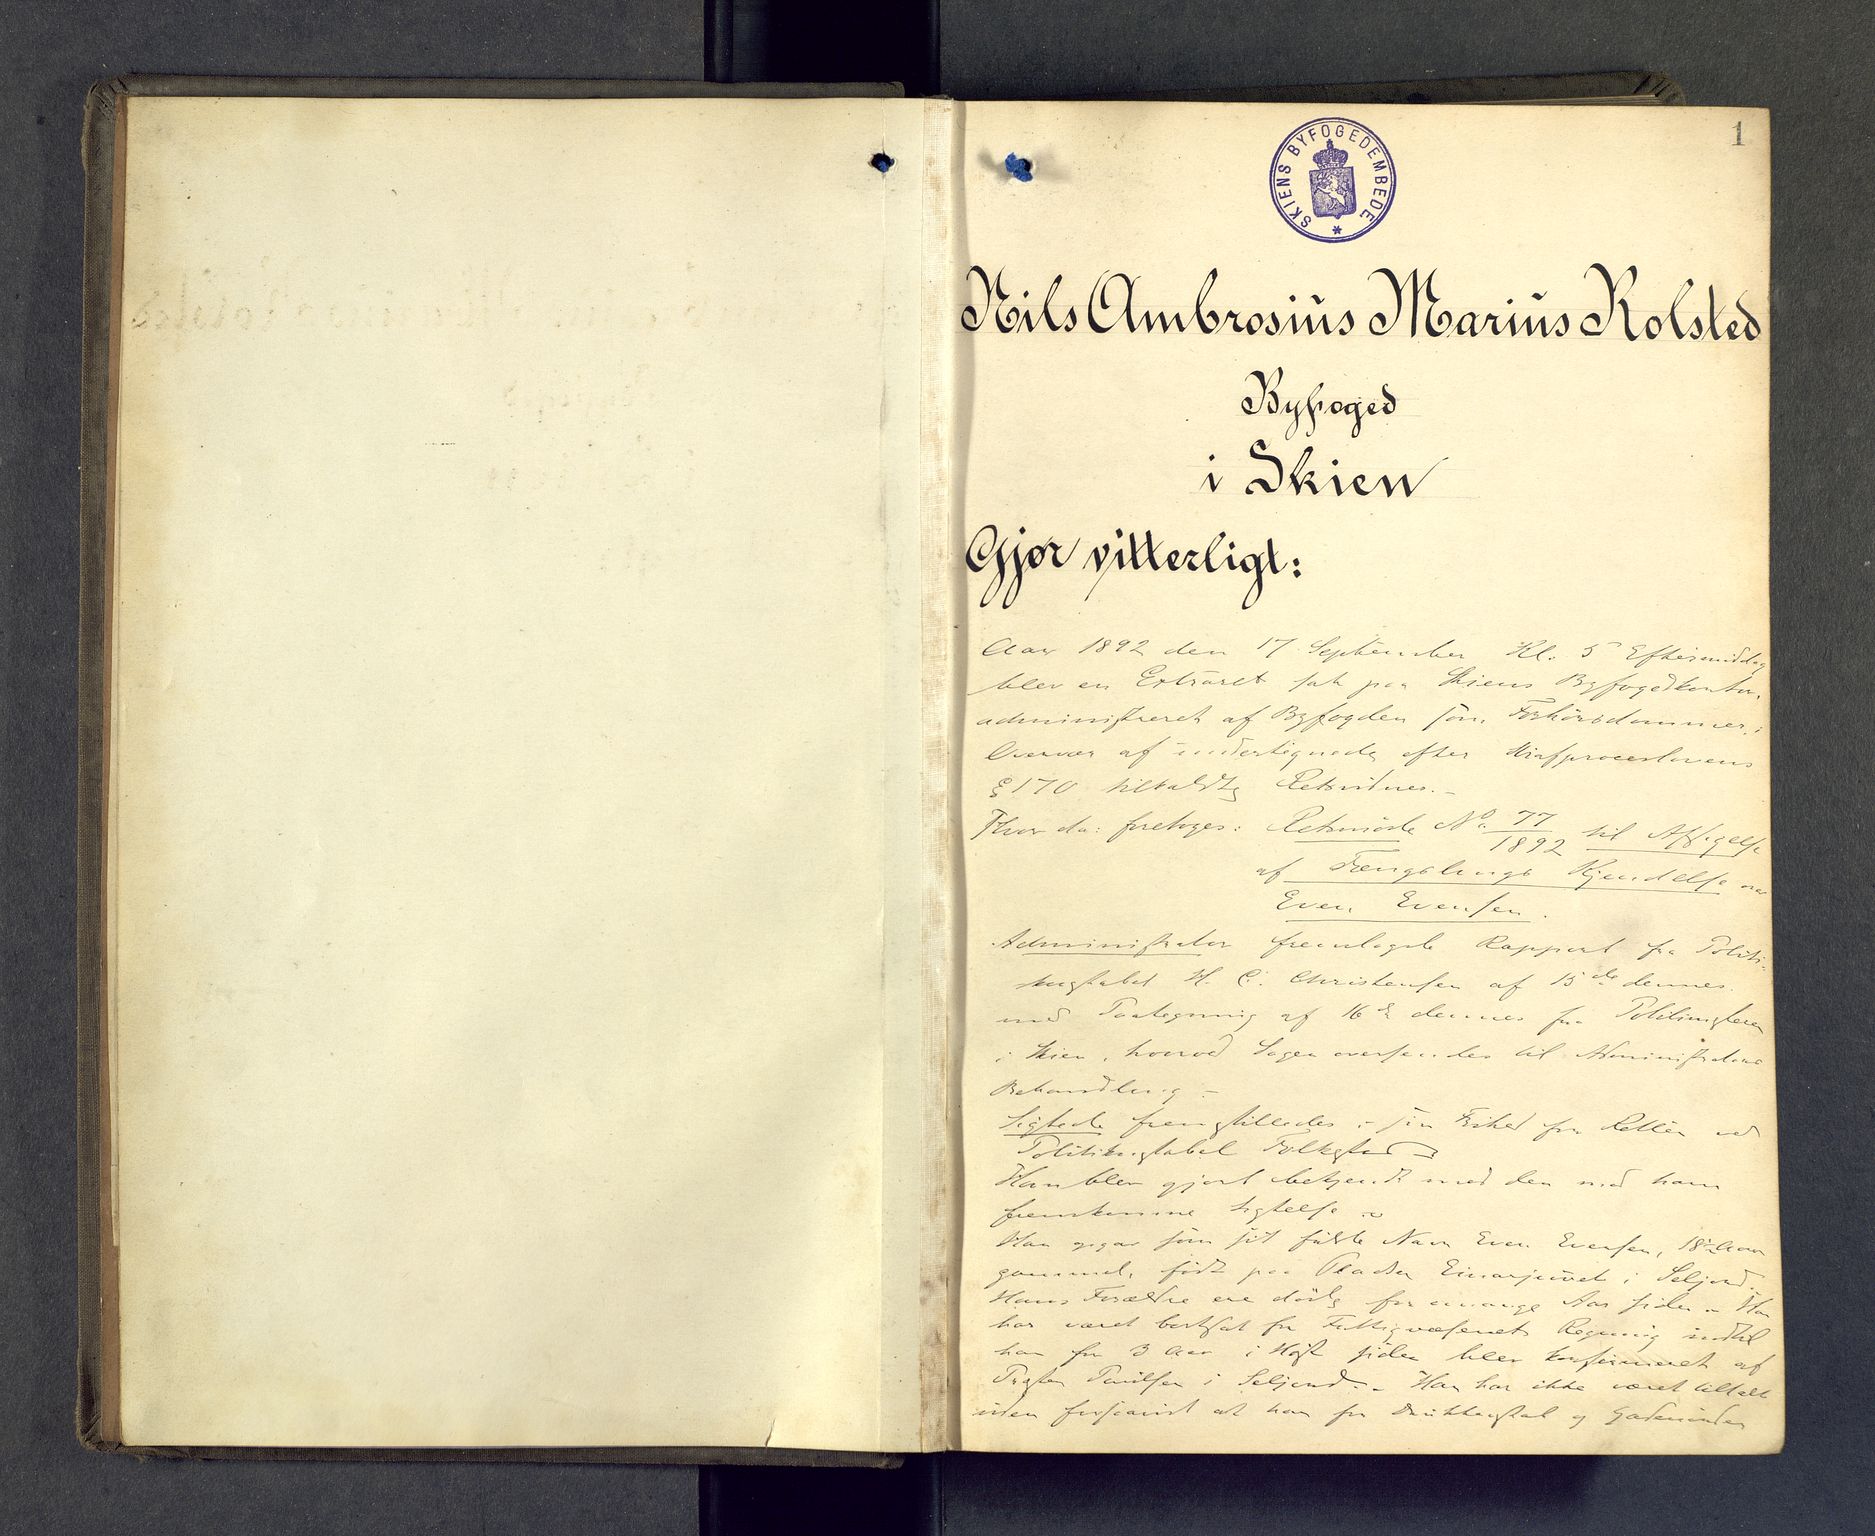 1
SKIENS BYFOGEDEMBEDE
Nils Ambrosius Marius Rolsted
Byfoged
i Skien
Gjør vitterligt:
Aar 1892 den 17 September Kl. 5 Eftermiddag
blev en Extraret sat paa Skiens Byfogedkontor,
administreret af Byfogden som Forhørsdommer, i
Overvær af undertegnede efter Strafproceslovens
§ 170 tilkaldte Retsvidner. -
Hvor da: foretoges: Retsmøde No. 77/1892 til Afsigelse
af Fængslings Kjendelse over
Even Evensen.
Administrator fremlagde Rapport fra Politi-
konstabel H. C. Christensen af 15de dennes
med Paategning af 16de dennes fra Politimesteren
i Skien, hvorved Sagen oversendes til Administrators
Behandling -
Sigtede fremstilledes i sin Frihed for Retten ved
Politikonstabel
Han blev gjort bekjendt med den mod ham
fremkomne Sigtelse
Han opgav som sit fulde Navn Even Evensen, 18 Aar
gammel, født paa Pladsen i Seljord.
Hans Forældre ere døde for mange Aar siden - Han
har været bortsat for Fattigvæsenets Regning indtil
han for 3 Aar i Høst siden blev konfirmeret af
Presten Paulsen i Seljord. - Han har ikke været tiltalt
uden forsaavidt at han for Drukkenskab og Gadeuorden